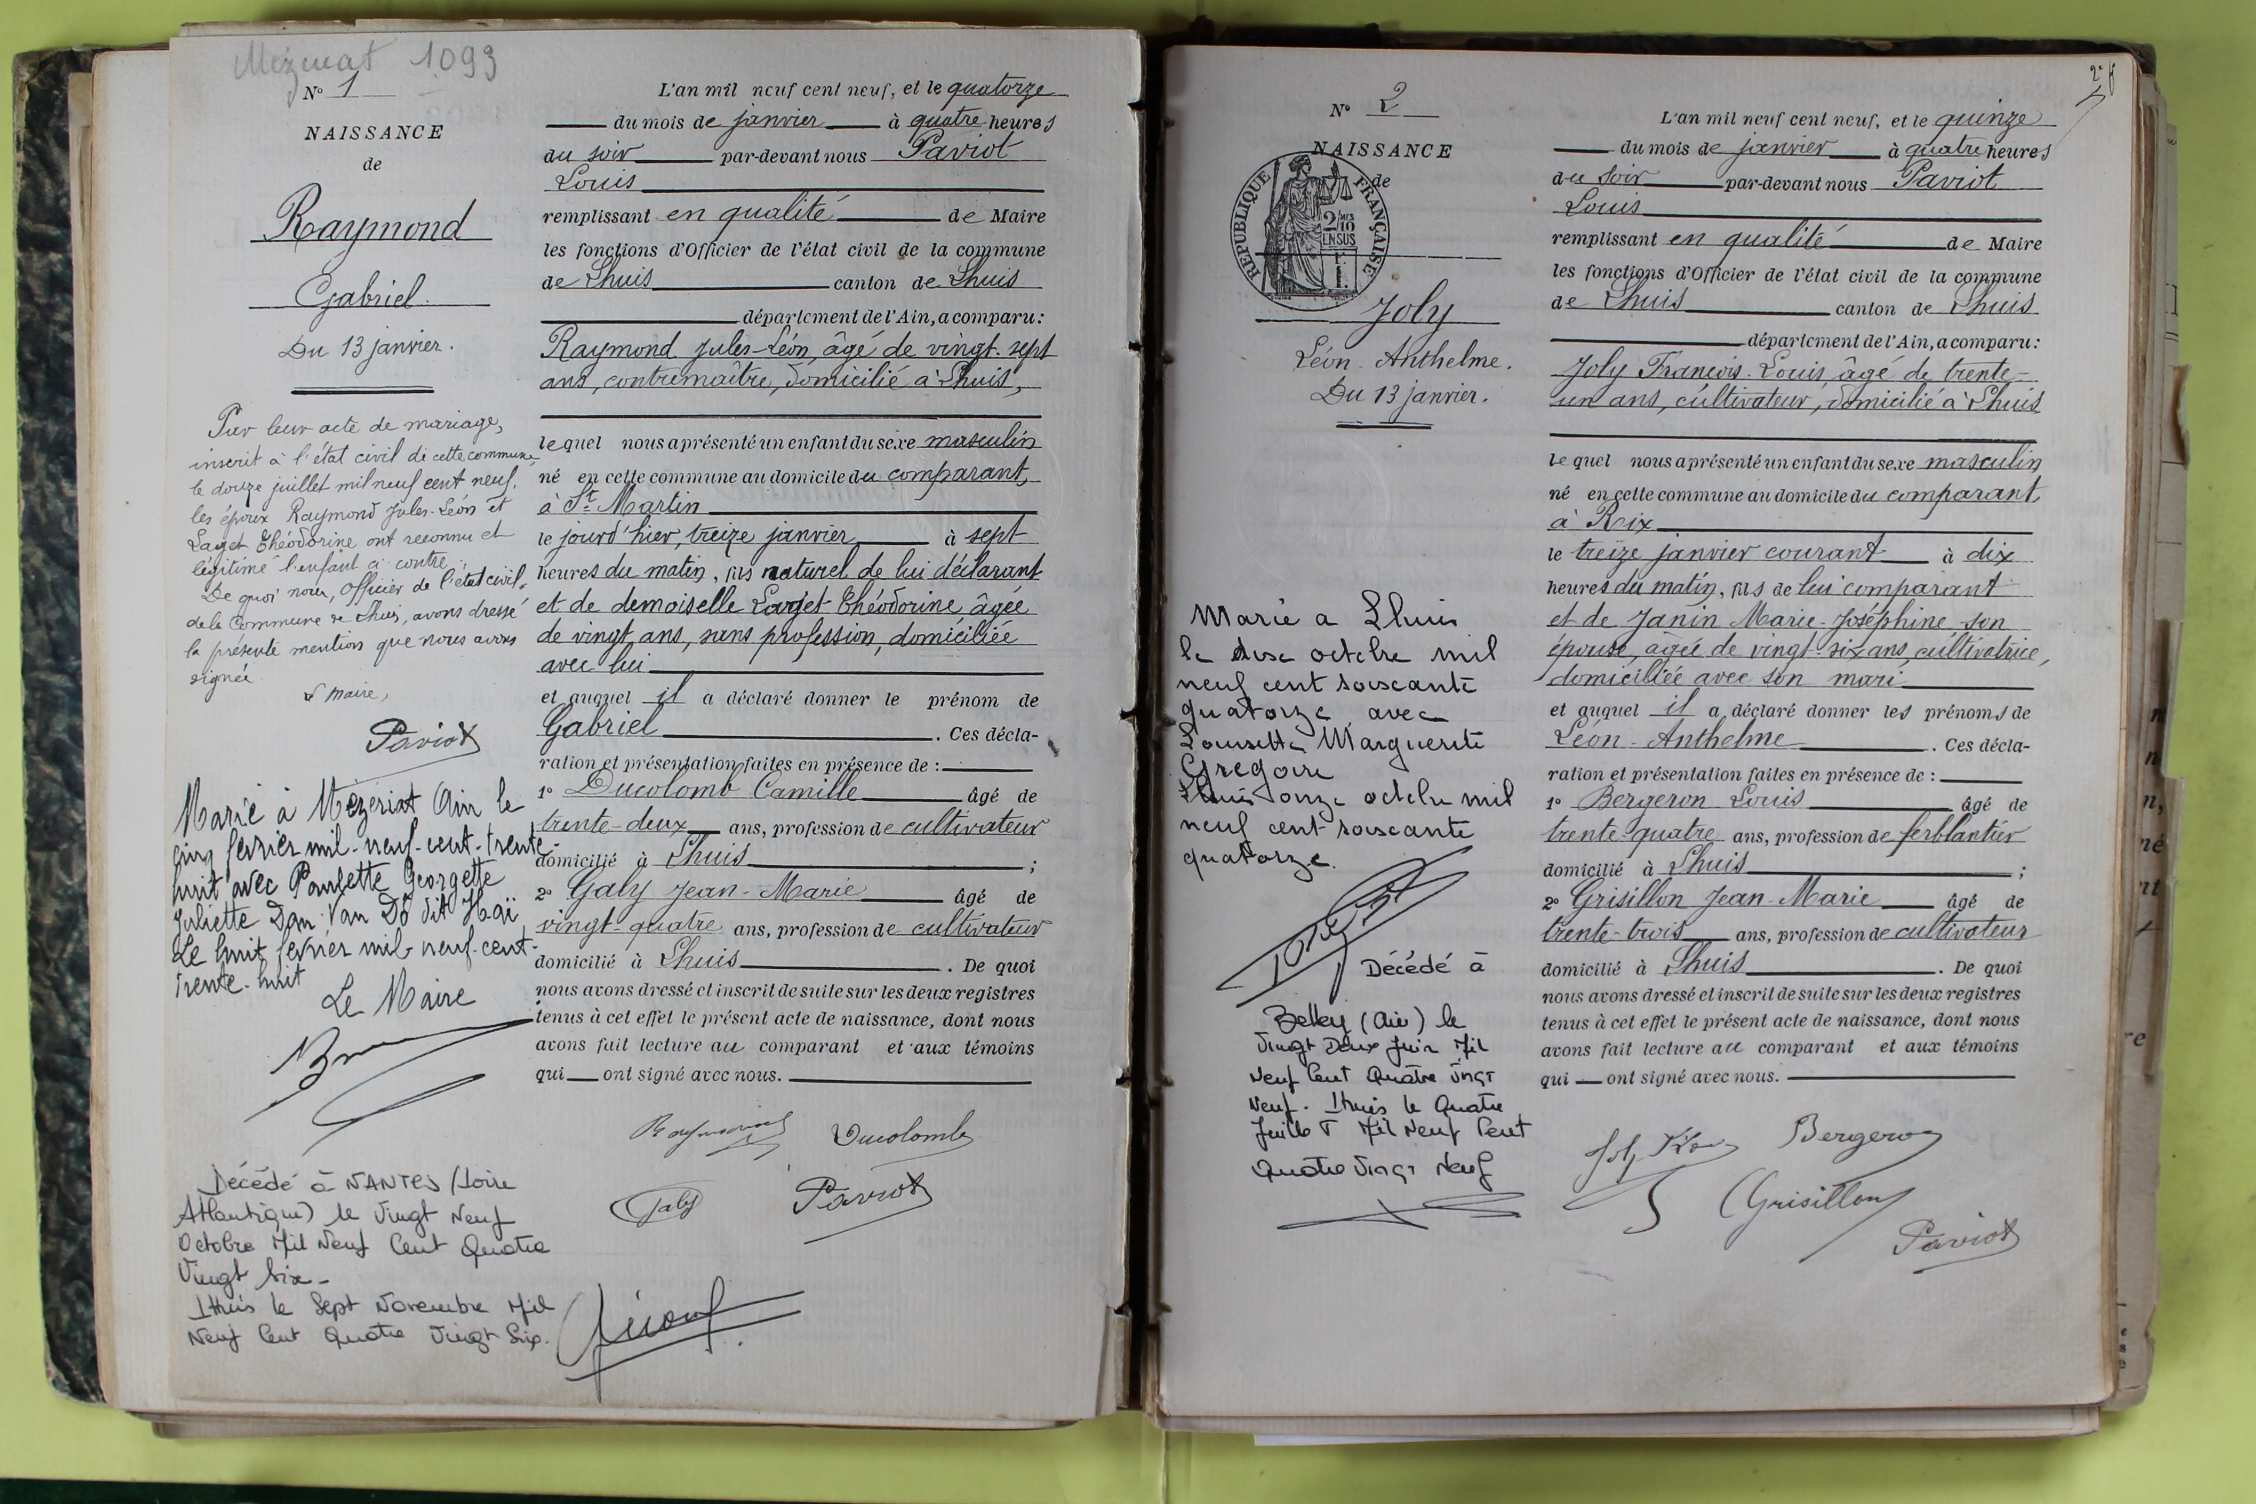 Mézériat 1093
N° 1
NAISSANCE
de
Raymond
Gabriel.
Du 13 janvier.
Par leur acte de mariage,
inscrit à l'état civil de cette commune
le douze juillet mil neuf cent neuf,
les époux Raymond Jules-Léon et
Laget Théodorine ont reconnu et
légitimé l'enfant ci contre.
De quoi nous, Officier de l'état civil
de la Commune de Lhuis, avons dressé
la présente mention que nous avons
signée.
Le Maire,
Paviot
Marié à Mézériat Ain le
cinq février mil-neuf-cent-trente-
huit avec Paulette Georgette
Juliette Dan Van Dô dit Haï
Le huit février mil-neuf-cent-
trente-huit
Le Maire
Décédé à NANTES (Loire
Atlantique) le Vingt Neuf
Octobre Mil Neuf Cent Quatre
Vingt Six -
Lhuis le Sept Novembre Mil
Neuf Cent Quatre Vingt Six.
L'an mil neuf cent neuf, et le quatorze
du mois de janvier à quatre heures
du soir par-devant nous Paviot
Louis
remplissant en qualité de Maire
les fonctions d'Officier de l'état civil de la commune
de Lhuis canton de Lhuis
département de l'Ain, a comparu :
Raymond Jules-Léon, âgé de vingt-sept
ans, contremaître, domicilié à Lhuis,
lequel nous a présenté un enfant du sexe masculin
né en cette commune au domicile du comparant,
à St Martin
le jourd'hier, treize janvier à sept
heures du matin, fils naturel de lui déclarant
et de demoiselle Laget Théodorine âgée
de vingt ans, sans profession, domiciliée
avec lui
et auquel il a déclaré donner le prénom de
Gabriel . Ces décla-
ration et présentation faites en présence de :
1° Ducolomb Camille âgé de
trente-deux ans, profession de cultivateur
domicilié à Lhuis ;
2° Galy Jean-Marie âgé de
vingt-quatre ans, profession de cultivateur
domicilié à Lhuis . De quoi
nous avons dressé et inscrit de suite sur les deux registres
tenus à cet effet le présent acte de naissance, dont nous
avons fait lecture au comparant et aux témoins
qui ont signé avec nous.
Raymond Ducolomb
Galy Paviot
2
N° 2
NAISSANCE
de
RÉPUBLIQUE FRANÇAISE
2/10 EN SUS
Joly
Léon-Anthelme.
Du 13 janvier.
Marié a Lhuis
le dix octobre mil
neuf cent soixante
quatorze avec
Louisette Marguerite
Gregoire
Lhuis onze octobre mil
neuf cent soixante
quatorze.
Décédé à
Belley (Ain) le
Vingt Deux Juin Mil
Neuf Cent Quatre Vingt
Neuf. Lhuis le Quatre
Juillet Mil Neuf Cent
Quatre Vingt Neuf
L'an mil neuf cent neuf, et le quinze
du mois de janvier à quatre heures
du soir par-devant nous Paviot
Louis
remplissant en qualité de Maire
les fonctions d'Officier de l'état civil de la commune
de Lhuis canton de Lhuis
département de l'Ain, a comparu :
Joly François-Louis âgé de trente-
un ans, cultivateur, domicilié à Lhuis
lequel nous a présenté un enfant du sexe masculin
né en cette commune au domicile du comparant,
à Rix
le treize janvier courant à dix
heures du matin, fils de lui comparant
et de Janin Marie-Joséphine son
épouse, âgée de vingt-six ans, cultivatrice,
domiciliée avec son mari
et auquel il a déclaré donner les prénoms de
Léon-Anthelme . Ces décla-
ration et présentation faites en présence de :
1° Bergeron Louis âgé de
trente-quatre ans, profession de ferblantier
domicilié à Lhuis ;
2° Grisillon Jean-Marie âgé de
trente-trois ans, profession de cultivateur
domicilié à Lhuis . De quoi
nous avons dressé et inscrit de suite sur les deux registres
tenus à cet effet le présent acte de naissance, dont nous
avons fait lecture au comparant et aux témoins
qui ont signé avec nous.
Joly Bergeron
Grisillon
Paviot